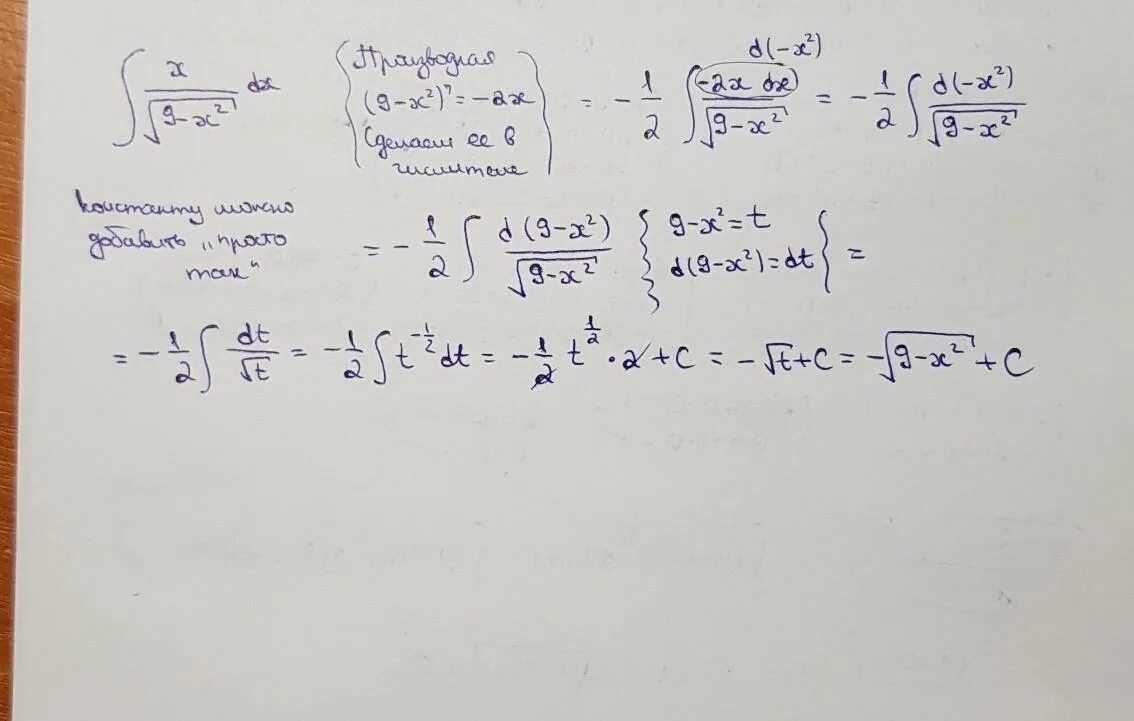 ∫ x/√(9-x²) dx { Производная (9-x²)' = -2x Сделаем ее в числителе } = -1/2 ∫ (-2x dx)/√(9-x²) d(-x²) = -1/2 ∫ d(-x²)/√(9-x²)
Константу можно добавить „просто так“ = -1/2 ∫ d(9-x²)/√(9-x²) { 9-x² = t d(9-x²) = dt } =
= -1/2 ∫ dt/√t = -1/2 ∫ t^(-1/2) dt = -1/2 t^(1/2) · 2 + C = -√t + C = -√(9-x²) + C